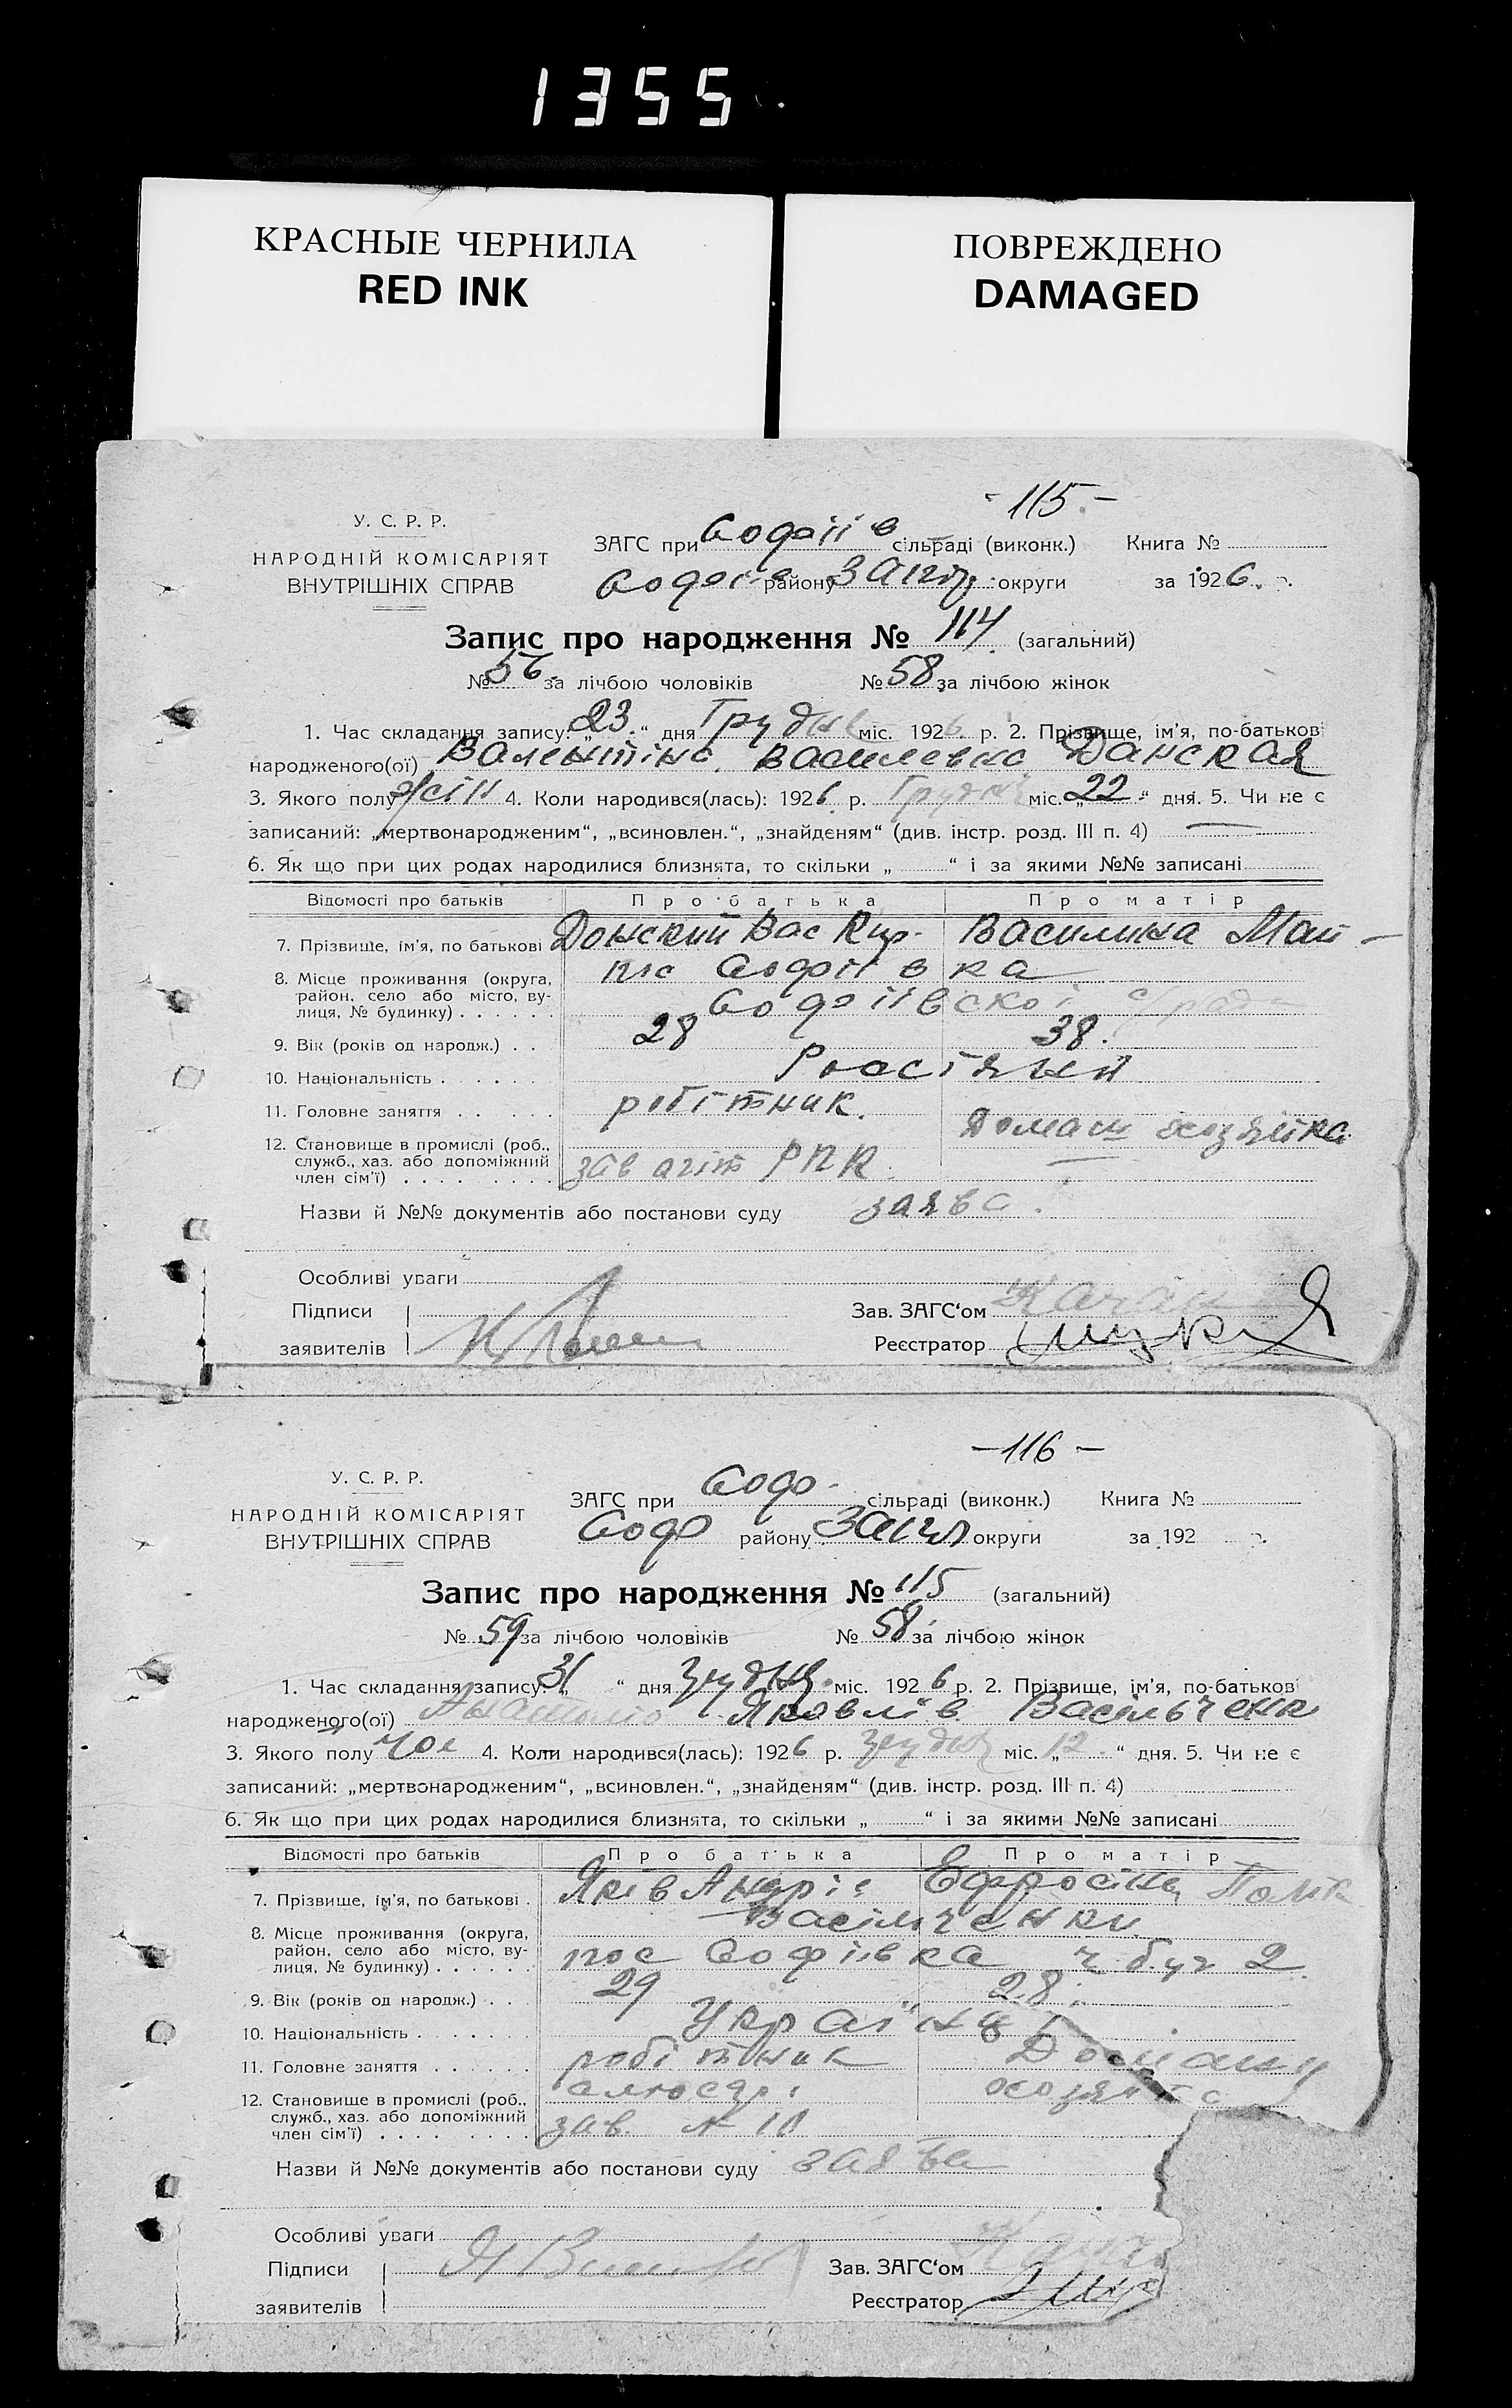 1355
КРАСНЫЕ ЧЕРНИЛА
RED INK
ПОВРЕЖДЕНО
DAMAGED
- 115 -
У. С. Р. Р.
НАРОДНІЙ КОМІСАРІЯТ
ВНУТРІШНІХ СПРАВ
ЗАГС при Софіїв сільраді (виконк.) Книга №
району Запор. округи за 1926. р.
Запис про народження № 114. (загальний)
№ 56 за лічбою чоловіків № 58 за лічбою жінок
1. Час складання запису: „23.“ дня Грудня міс. 1926 р. 2. Прізвище, ім'я, по-батькові
народженого(ої) Валентіна Василевна Данская
3. Якого полу жін 4. Коли народився(лась): 1926 р. Грудня міс. „22.“ дня. 5. Чи не є
записаний: „мертвонародженим“, „всиновлен.“, „знайденям“ (див. інстр. розд. III п. 4) —
6. Як що при цих родах народилися близнята, то скільки „ “ і за якими №№ записані
Відомості про батьків Про батька Про матір
7. Прізвище, ім'я, по батькові Донский Вас Кир. Василина Мат -
8. Місце проживання (округа, район, село або місто, вулиця, № будинку) пос Софіївка
Софіївскоі с/рад
9. Вік (років од народж.) 28 38.
10. Національність
11. Головне заняття робітник. Домаш хозяйка
12. Становище в промислі (роб., служб., хаз. або допоміжний член сім'ї) зав РПК —
Назви й №№ документів або постанови суду заява.
Особливі уваги
Підписи Зав. ЗАГС‘ом
заявителів Реєстратор
- 116 -
У. С. Р. Р.
НАРОДНІЙ КОМІСАРІЯТ
ВНУТРІШНІХ СПРАВ
ЗАГС при Софі- сільраді (виконк.) Книга №
Софі району Запор округи за 192 р.
Запис про народження № 115 (загальний)
№ 59 за лічбою чоловіків № 58 за лічбою жінок
1. Час складання запису: „31 “ дня грудня міс. 1926 р. 2. Прізвище, ім'я, по-батькові
народженого(ої) Анатолій Яковлів. Васільченк
3. Якого полу чол 4. Коли народився(лась): 1926 р. грудня міс. „12.“ дня. 5. Чи не є
записаний: „мертвонародженим“, „всиновлен.“, „знайденям“ (див. інстр. розд. III п. 4)
6. Як що при цих родах народилися близнята, то скільки „ “ і за якими №№ записані
Відомості про батьків Про батька Про матір
7. Прізвище, ім'я, по батькові Яків Андріє Ефросіна
Васільченки
8. Місце проживання (округа, район, село або місто, вулиця, № будинку) пос Софіївка 2
9. Вік (років од народж.) 29 28.
10. Національність Украінці
11. Головне заняття робітник Домашн
12. Становище в промислі (роб., служб., хаз. або допоміжний член сім'ї) слюсарь
зав. № 10
Назви й №№ документів або постанови суду заява
Особливі уваги
Підписи Зав. ЗАГС‘ом
заявителів Реєстратор